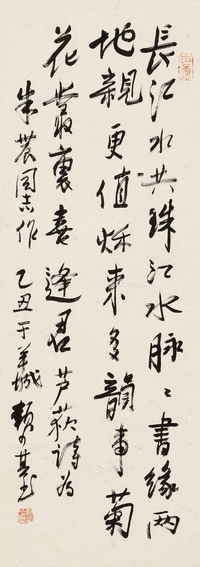 長江水共珠江水脉〻書緣兩
地親更值秌来多韻事菊
花叢裏喜逢君芦荻诗为
朱農同志作
乙丑于羊城
賴少其